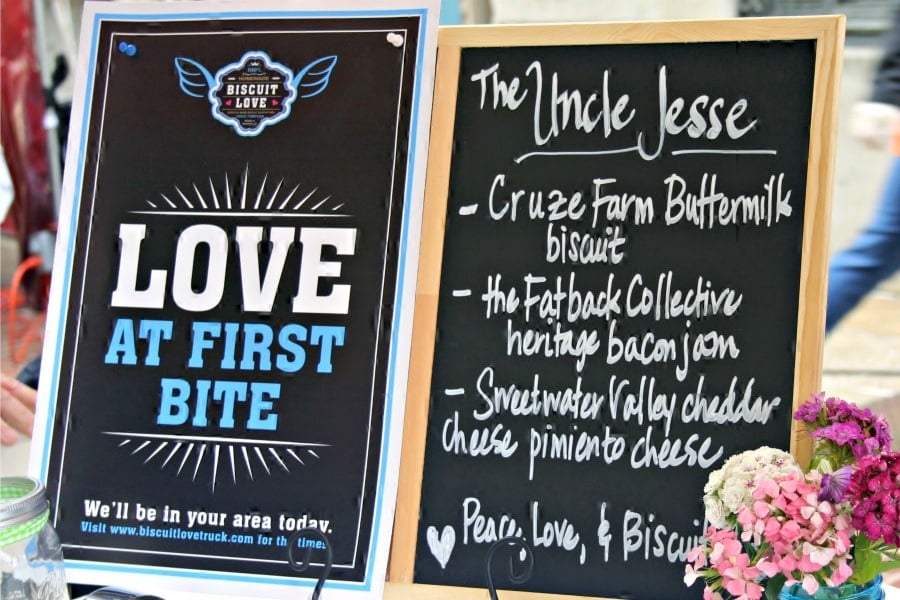 100%
HOMEMADE
BISCUIT
LOVE
LOVE
AT FIRST
BITE
We'll be in your area today.
Visit www.biscuitlovetruck.com for the times.
The Uncle Jesse
- Cruze Farm Buttermilk
biscuit
- the Fatback Collective
heritage bacon jam
- Sweetwater Valley cheddar
cheese pimiento cheese
Peace, Love, & Biscui